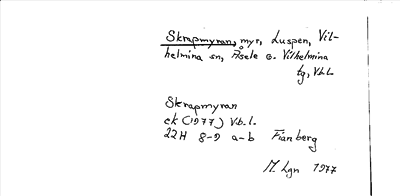 Skrapmyran, myr, Luspen, Vil-
helmina sn, Åsele o. Vilhelmina
tg, Vb.l.
Skrapmyran
ek (1977) Vb.l.
22H 8-9 a-b Fianberg
M. Lgn 1977